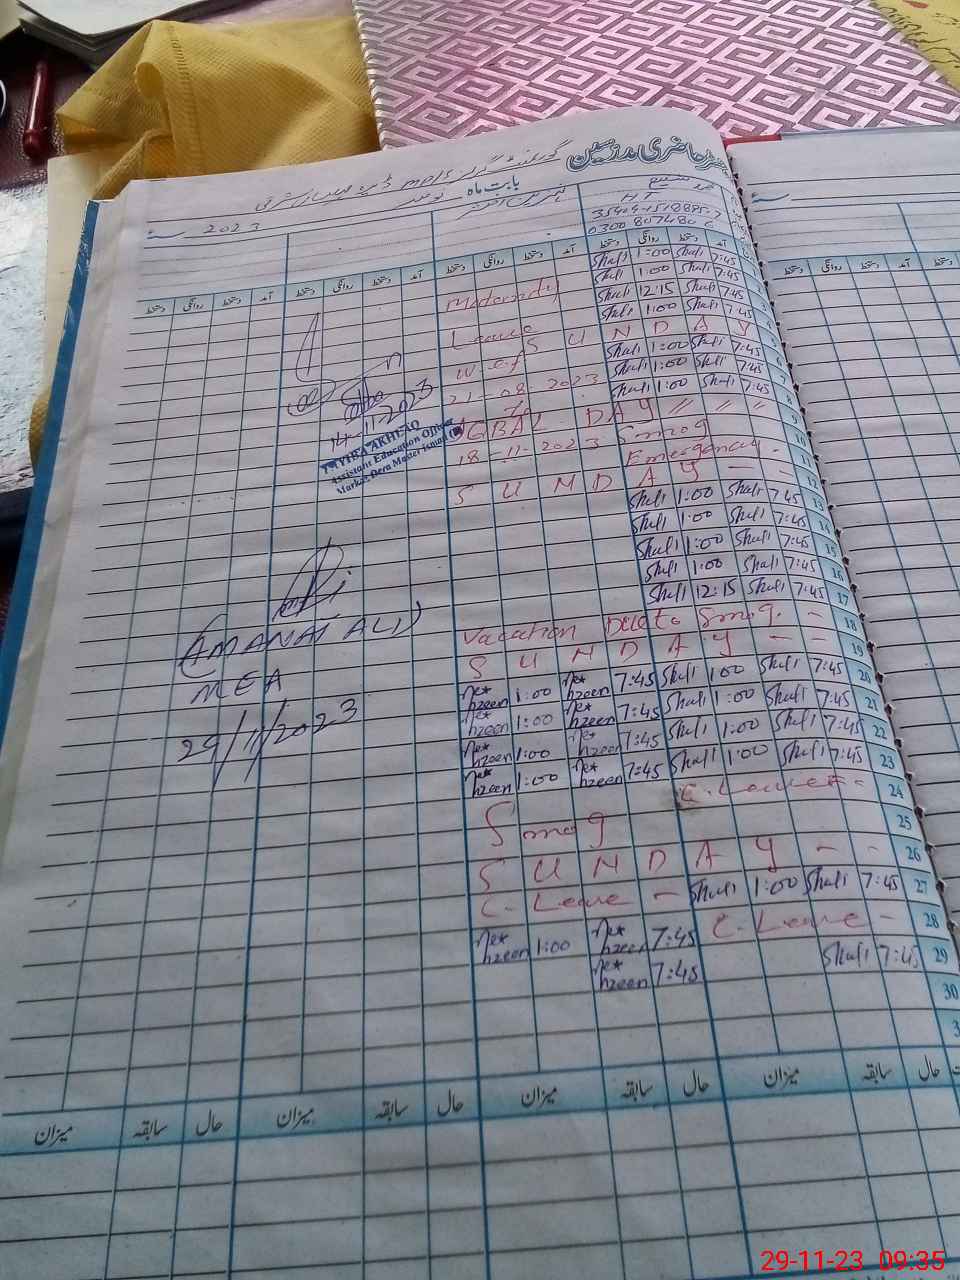 رجسٹر حاضری مدرسین
بابت ماہ نومبر
2023
HT
آمد دستخط روانگی دستخط آمد دستخط روانگی دستخط آمد دستخط روانگی دستخط
Shafi 1:00 Shafi 7:45
Shafi 1:00 Shafi 7:45
Maternity Shafi 12:15 Shafi 7:45
Shafi 1:00 Shafi 7:45
Leave S U N D A Y
w.e.f Shafi 1:00 Shafi 7:45 6
21-08-2023 Shafi 1:00 Shafi 7:45 7
To Shafi 1:00 Shafi 7:45 8
IQBAL DAY 〃 〃 〃 9
18-11-2023 Smog 10
Emergency - 11
S U N D A Y - 12
Shafi 1:00 Shafi 7:45 13
Shafi 1:00 Shafi 7:45 14
Shafi 1:00 Shafi 7:45 15
Shafi 1:00 Shafi 7:45 16
Shafi 12:15 Shafi 7:45 17
Vacation Due to Smog. - 18
S U N D A Y - - 19
1:00 7:45 Shafi 1:00 Shafi 7:45 20
1:00 7:45 Shafi 1:00 Shafi 7:45 21
1:00 7:45 Shafi 1:00 Shafi 7:45 22
1:00 7:45 Shafi 1:00 Shafi 7:45 23
C. Leave - 24
Smog 25
S U N D A Y - - 26
C. Leave - Shafi 1:00 Shafi 7:45 27
1:00 7:45 C. Leave - 28
7:45 Shafi 7:45 29
30
3
14-11-2023
TAYIBA AKHLAQ
Assistant Education Officer
Markaz Dera
(AMANAT ALI)
MEA
29/11/2023
حال سابقہ میزان حال سابقہ میزان حال سابقہ میزان حال سابقہ میزان
29-11-23 09:35